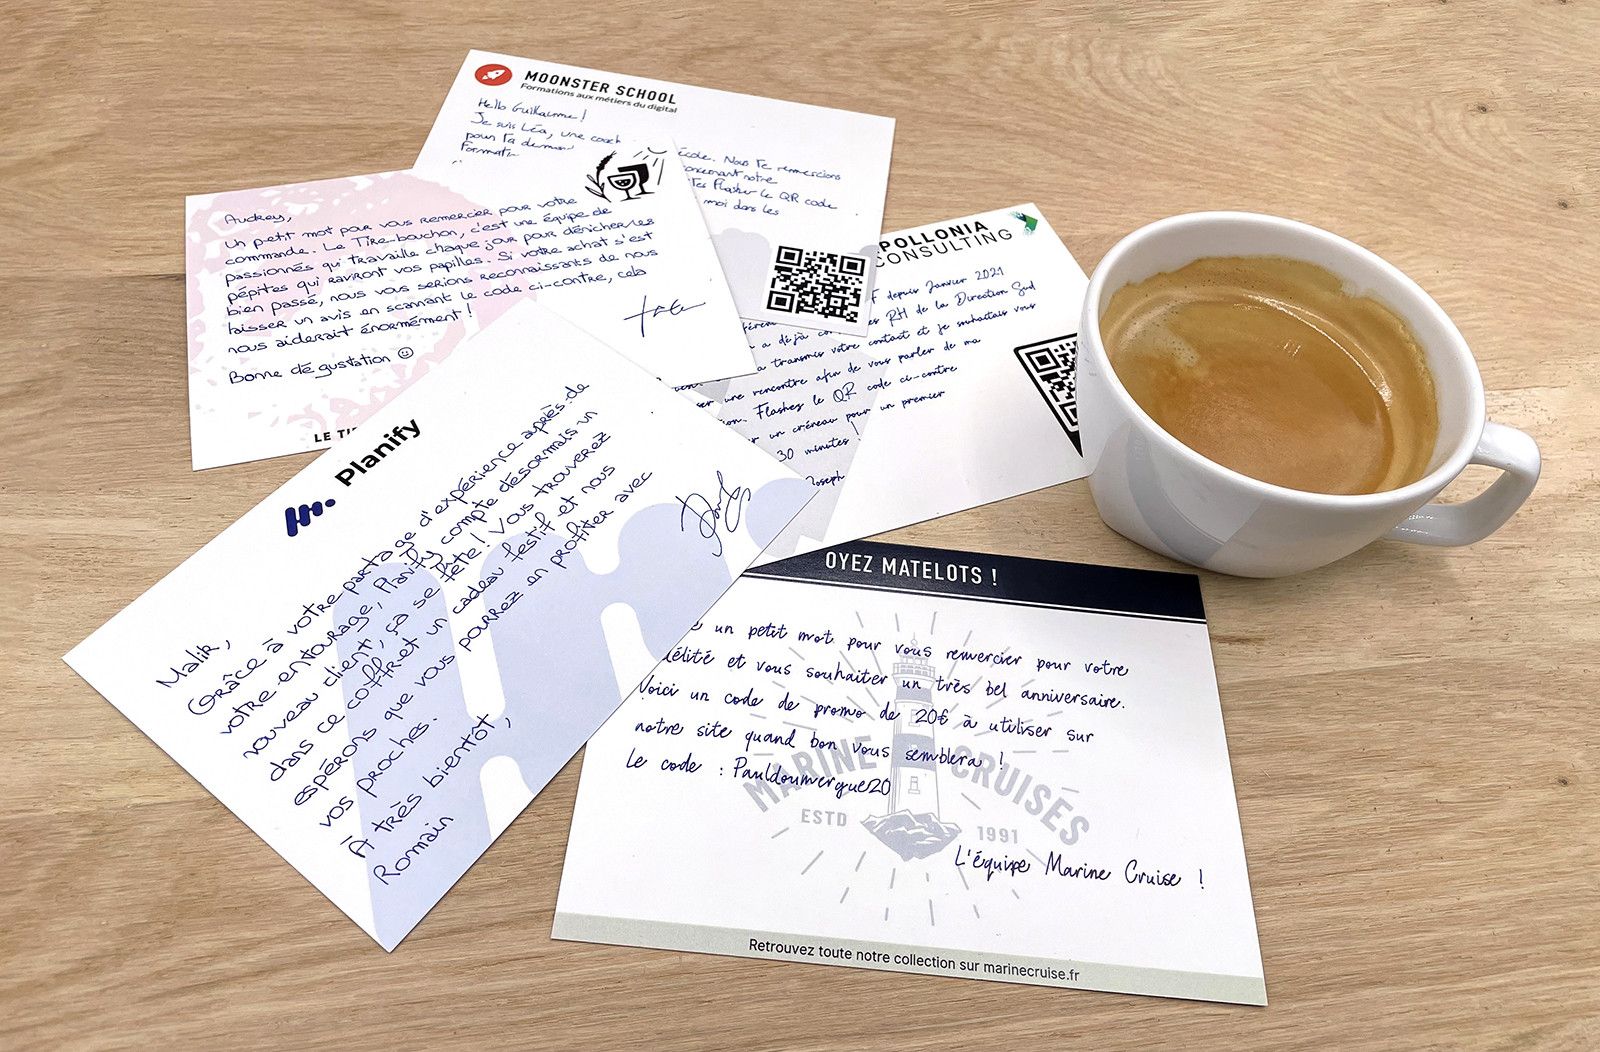 MOONSTER SCHOOL
Formations aux métiers du digital
Hello Guillaume !
Je suis Léa, une coach école. Nous te remercions
pour ta deman oncernant notre
Formati tes Flasher le QR code
moi dans les
Audrey,
Un petit mot pour vous remercier pour votre
commande. Le Tire-bouchon, c'est une équipe de
passionnés qui travaille chaque jour pour dénicher les
pépites qui raviront vos papilles. Si votre achat s'est
bien passé, nous vous serions reconnaissants de nous
laisser un avis en scannant le code ci-contre, cela
nous aiderait énormément !
Bonne dégustation
LE TI
POLLONIA
CONSULTING
F depuis Janvier 2021
a déjà es RH de la Direction Sud
a transmis votre contact et je souhaitais vous
ser une rencontre afin de vous parler de ma
ion. Flashez le QR code ci-contre
er un créneau pour un premier
30 minutes !
Joseph
Planify
Malik,
Grâce à votre partage d'expérience auprès de
votre entourage, Planify compte désormais un
nouveau client, ça se fête ! Vous trouverez
dans ce coffret un cadeau festif et nous
espérons que vous pourrez en profiter avec
vos proches.
À très bientôt,
Romain
OYEZ MATELOTS !
un petit mot pour vous remercier pour votre
délité et vous souhaiter un très bel anniversaire.
Voici un code de promo de 20€ à utiliser sur
notre site quand bon vous semblera !
Le code : Pauldoumergue20
MARINE CRUISES
ESTD 1991
L'équipe Marine Cruise !
Retrouvez toute notre collection sur marinecruise.fr